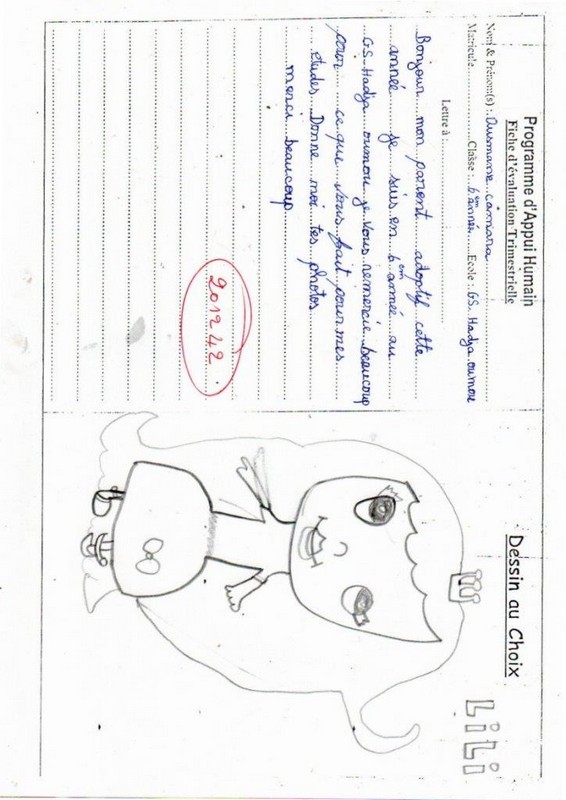 Programme d'Appui Humain
Fiche d'évaluation Trimestrielle
Nom & Prénom(s) : Ousmane camara
Matricule Classe : 6ème année Ecole : GS. Hadja oumou
Lettre à :
Bonjour mon parent adoptif cette
année je suis en 6em année au
G.S Hadja oumou je vous remercie beaucoup
pour ce que vous fait pour mes
études Donne moi tes photos
merci beaucoup
201242.
Dessin au Choix
LiLi